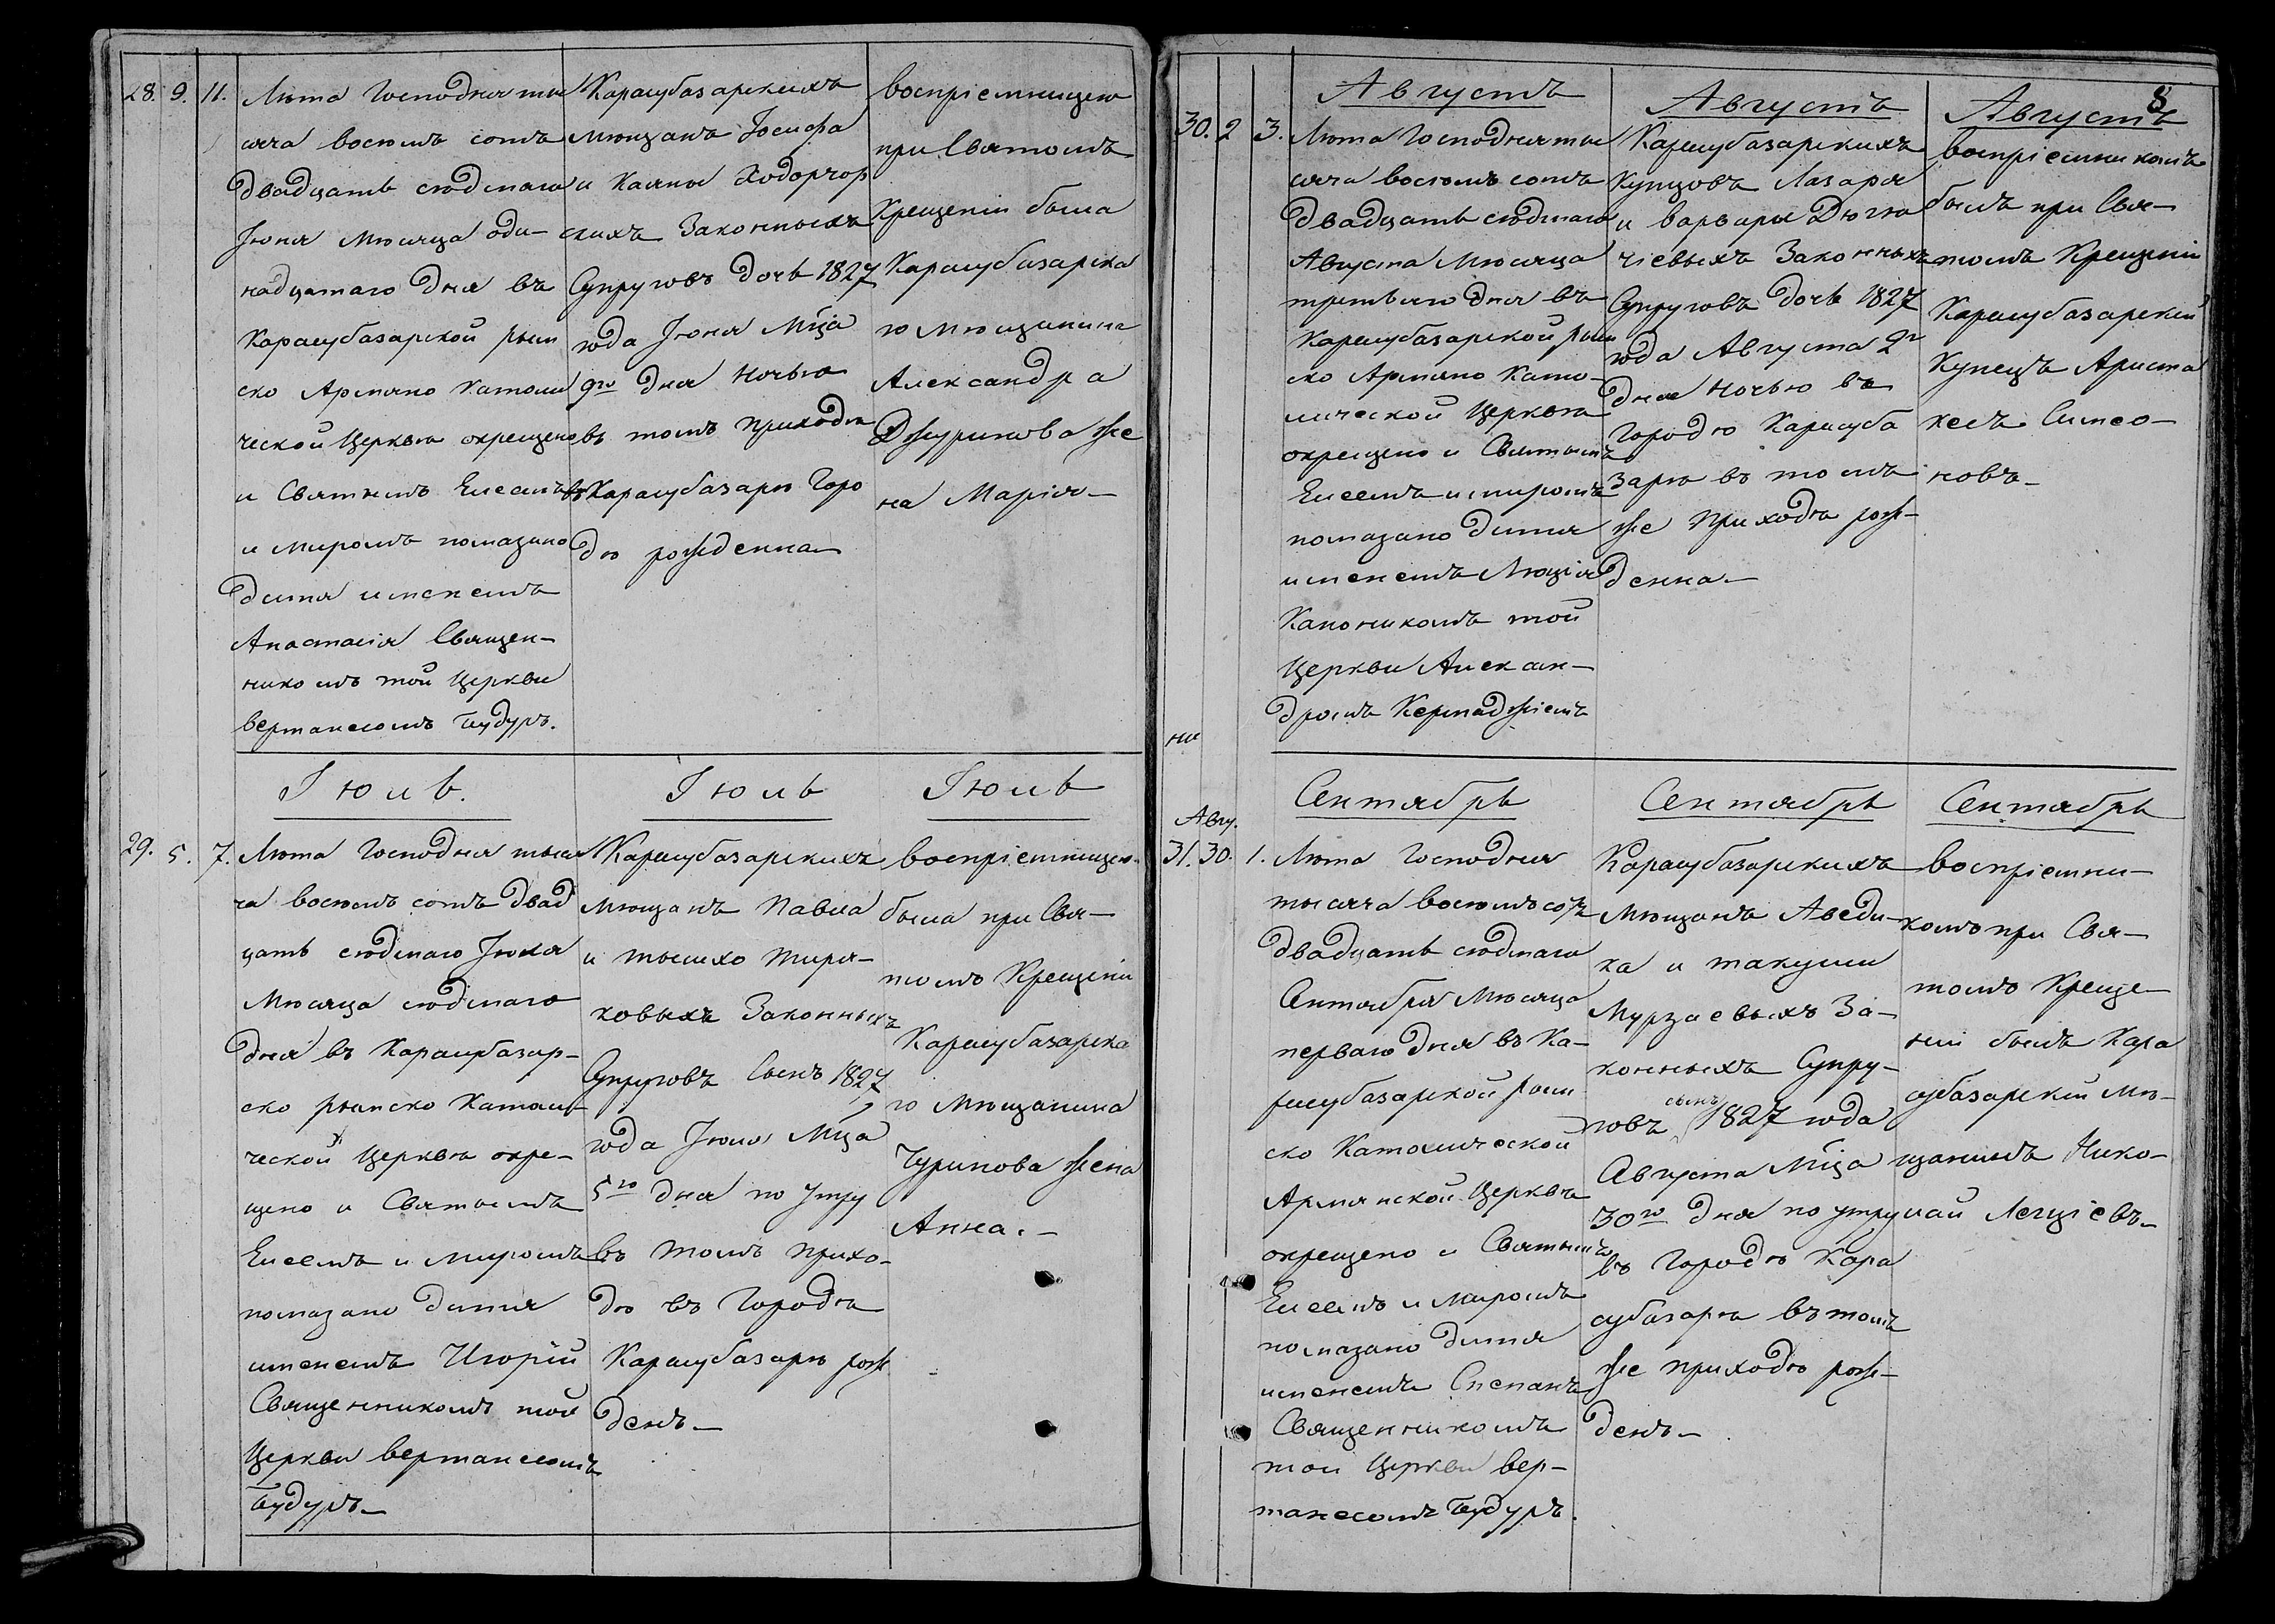 28. 9. 11.
Лѣта Господня тыс
яча восемъ сотъ
двадцать седмаго
Іюня Мѣсяца оди-
надцатаго дня въ
Карасубазарской рым
ско Армяно Католи
ческой Церквѣ окрещено
и Святымъ Елеемъ
и миромъ помазано
дитя именемъ
Анастасія Священ-
никомъ той Церкви
Вертанесомъ Тудуръ.
Карасубазарскихъ
мѣщанъ Іосифа
и Каяны Ходорчор
скихъ Законныхъ
Супруговъ дочь 1827
года Іюня Мца
9го дня ночью
въ томъ приходѣ
въ Карасубазарѣ Горо
дѣ рожденна
воспріемницею
при Святомъ
Крещеніи была
Карасубазарска
го мѣщанина
Александра
Джурикова же
на Марія-
Іюль.
Іюль
Іюль
29. 5. 7.
Лѣта Господня тыся
ча восемъ сотъ двад
цать седмаго Іюля
Мѣсяца седмаго
дня въ Карасубазар-
ско рымско Католи-
ческой Церквѣ окре-
щено и Святымъ
Елеемъ и миромъ
помазано дитя
именемъ Игорій
Священникомъ той
Церкви Вертанесомъ
Тудуръ-
Карасубазарскихъ
мѣщанъ Павла
и
ковыхъ Законныхъ
Супруговъ Сынъ 1827
года Іюля Мца
5го дня по утру
въ томъ прихо-
дѣ въ Городѣ
Карасубазарѣ рож
денъ-
воспріемницею
была при Свя-
томъ Крещеніи
Карасубазарска
го мѣщанина
Чурикова жена
Анна.-
8
Августъ
Августъ
Августъ
30. 2 3.
Лѣта Господня тыс
яча восемъ сотъ
двадцать седмаго
Августа Мѣсяца
третьяго дня въ
Карасубазарской рым
ско Армяно Като-
лической Церквѣ
окрещено и Святымъ
Елеемъ и миромъ
помазано дитя
именемъ Люція
Каноникомъ той
Церкви Алексан-
дромъ Кермаджіемъ
Карасубазарскихъ
Купцовъ Лазаря
и Варвары Дюгме
чіевыхъ Законныхъ
Супруговъ дочь 1827
года Августа 2г
дня ночью въ
Городѣ Карасуба
зарѣ въ томъ
же приходѣ рож-
денна-
воспріемникомъ
былъ при Свя-
томъ Крещеніи
Карасубазарскій
Купецъ Ариста
кесъ Симео-
новъ-
ни
Сентябрь
Сентябрь
Сентябрь
Авгу.
31. 30. 1.
Лѣта Господня
тысяча восемъ сотъ
двадцать седмаго
Сентября Мѣсяца
перваго дня въ Ка-
расубазарской рым
ско Католической
Армянской Церквѣ
окрещено и Святымъ
Елеемъ и миромъ
помазано дитя
именемъ Степанъ
Священникомъ
той Церкви Вер-
танесомъ Тудуръ.
Карасубазарскихъ
Мѣщанъ Аведи-
ка и такуги
Мурзаевыхъ За-
конныхъ Супру-
говъ сынъ 1827 года
Августа Мца
30го дня по утру
въ Городѣ Кара
субазарѣ въ томъ
же приходѣ рож-
денъ-
воспріемни-
комъ при Свя-
томъ Креще-
ніи былъ Кара
субазарскій мѣ-
щанинъ Нико-
лай Легціевъ-